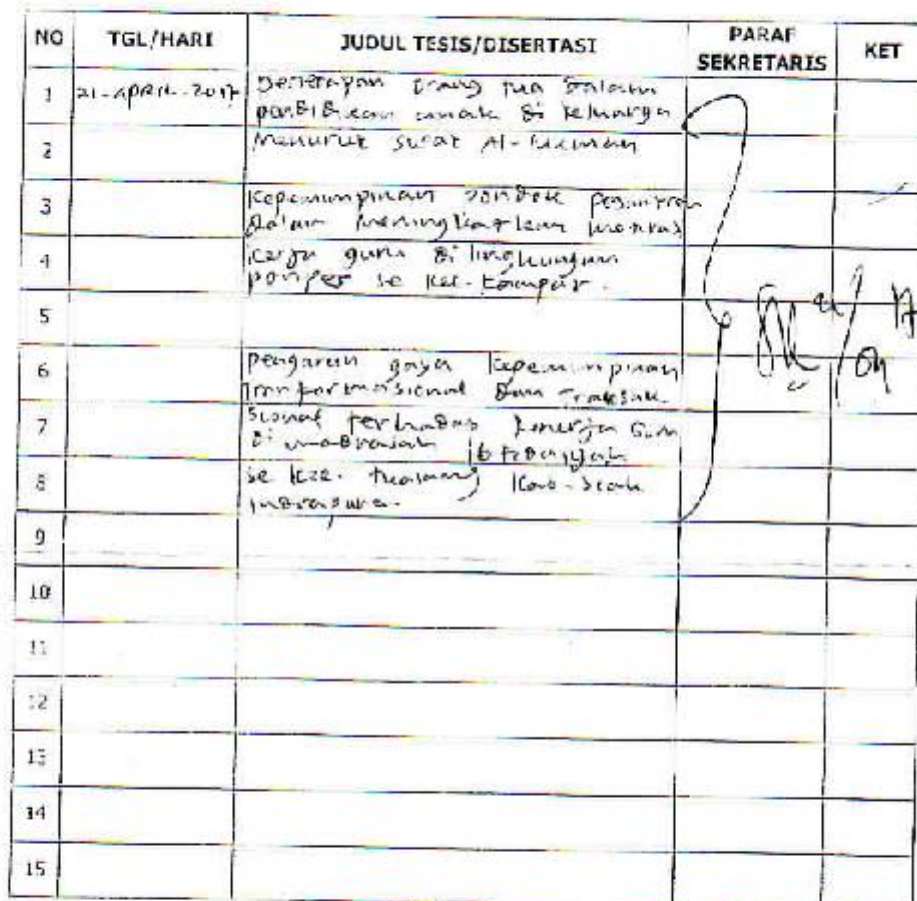 NO TGL/HARI JUDUL TESIS/DISERTASI PARAF SEKRETARIS KET
1 21-APRIL-2017 penerapan orang tua dalam
pendidikan anak di keluarga
2 Menurut surat Al-Lukman
3 Kepemimpinan pondok pesantren
dalam meningkatkan
4 kerja guru di lingkungan
ponpes se Kec. Kampar.
5
6 pengaruh gaya kepemimpinan
tranformasional dan Transak
7 sional terhadap kinerja Guru
di madrasah ibtidaiyah
8 se Kec. Tualang Kab. Siak
indrapura.
9
10
11
12
13
14
15